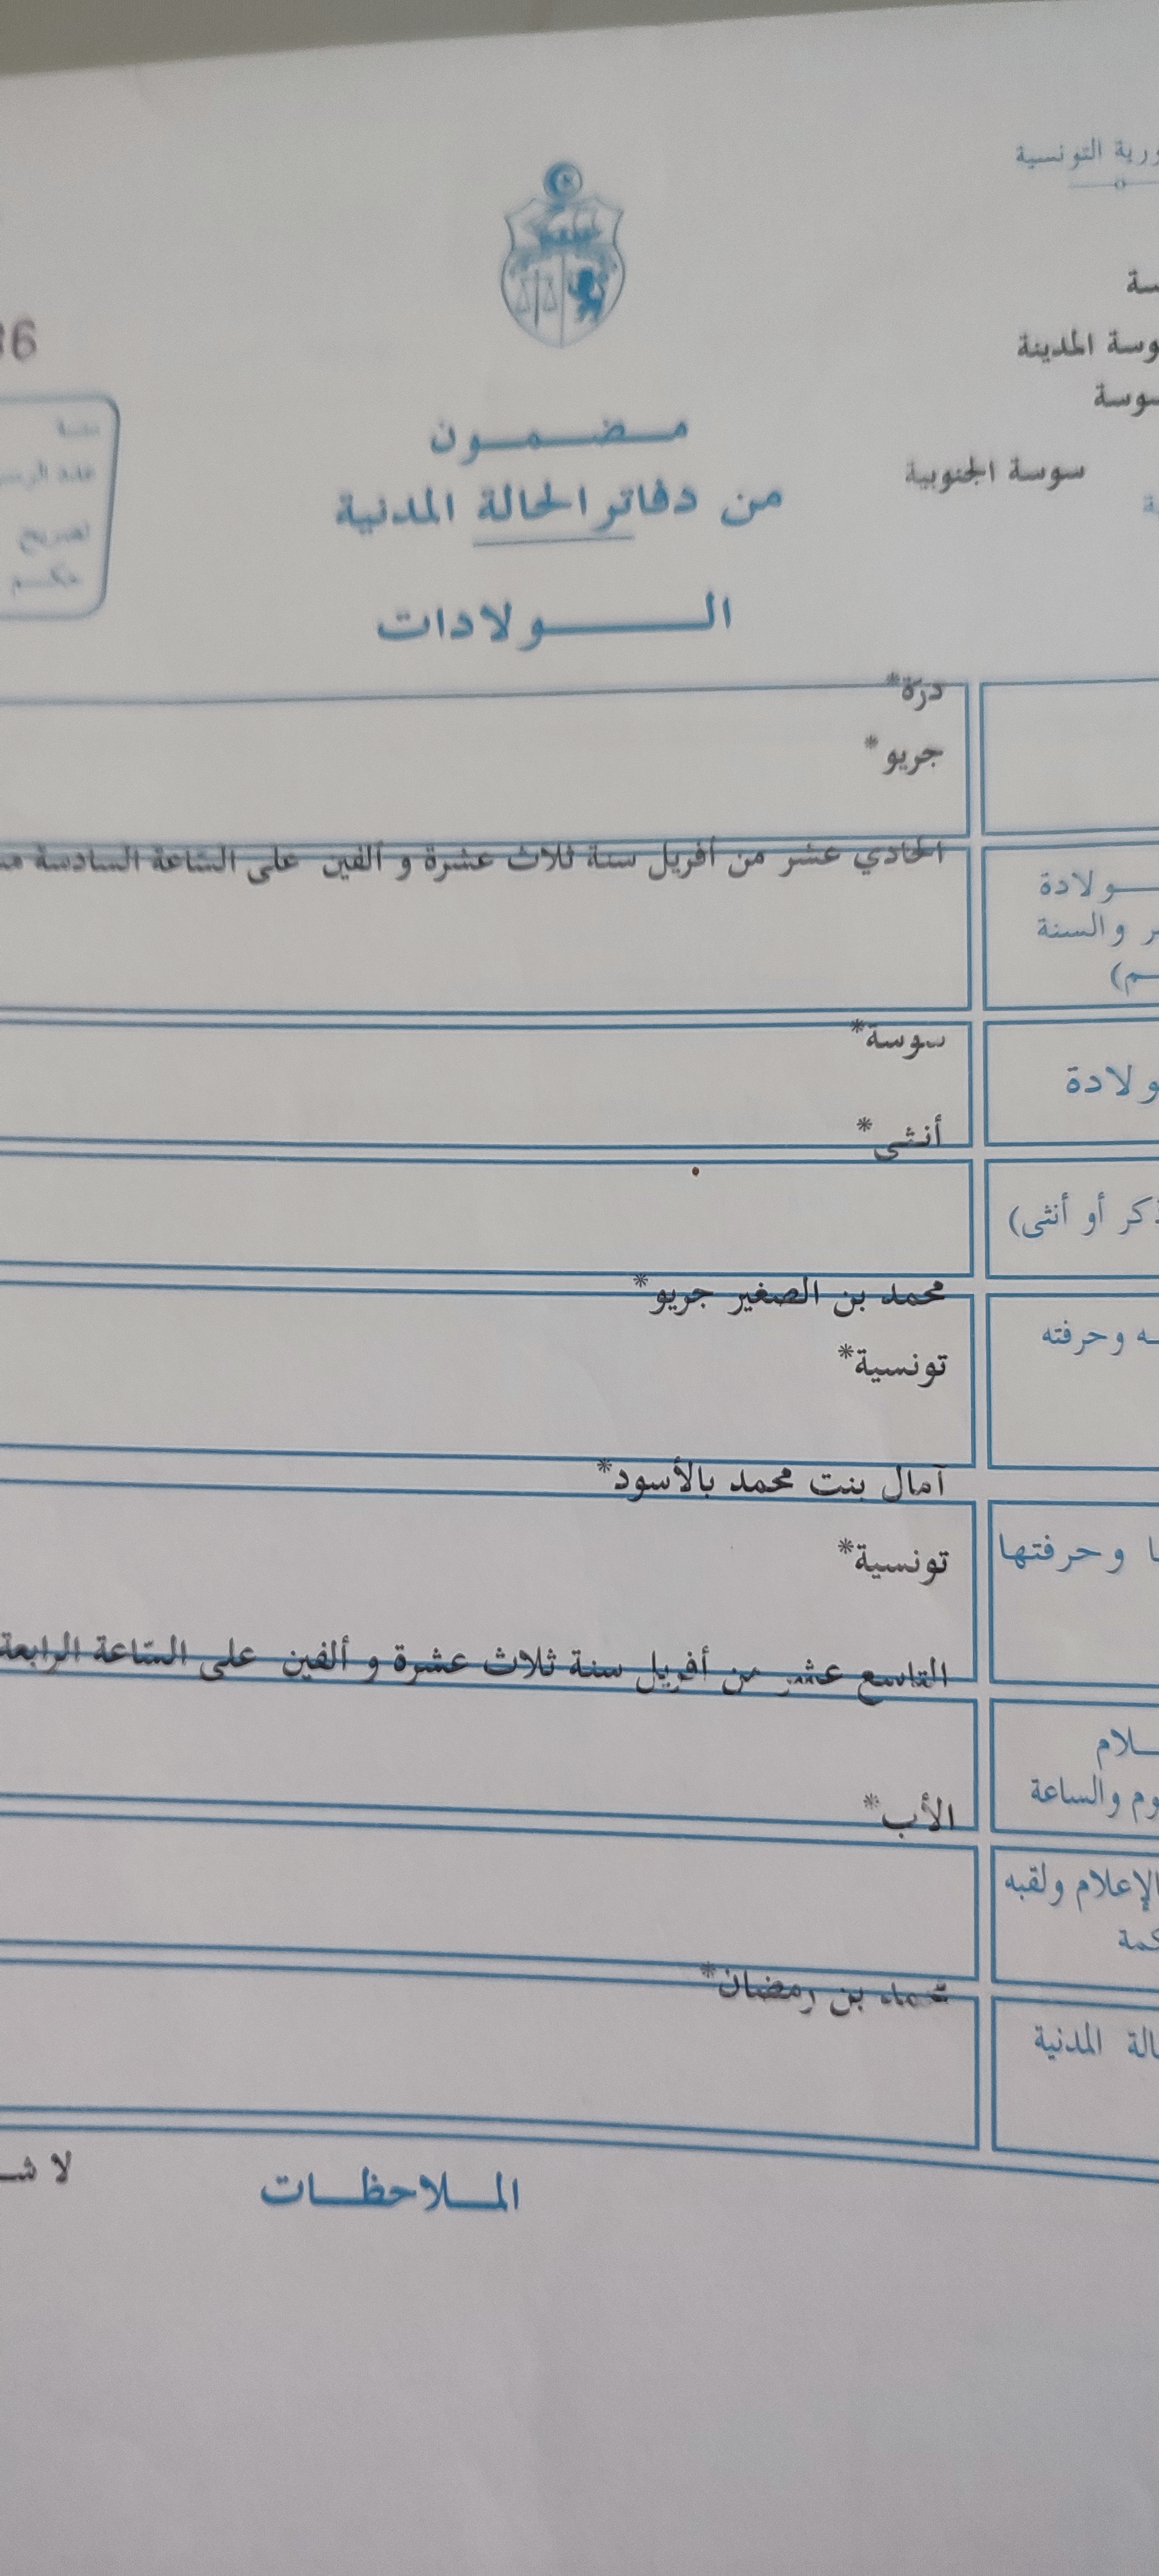 التونسية
المدينة
سوسة الجنوبية
36
مضمون
من دفاتر الحالة المدنية
الولادات
عدد الرسم
تصريح
حكم
درّة*
جريو*
الحادي عشر من أفريل سنة ثلاث عشرة و ألفين على الساعة السادسة
ولادة
والسنة
سوسة*
ولادة
أنثى*
أو أنثى)
محمد بن الصغير جريو*
وحرفته
تونسية*
آمال بنت محمد بالأسود*
وحرفتها
تونسية*
التاسع عشر من أفريل سنة ثلاث عشرة و ألفين على الساعة الرابعة
والساعة
الأب*
الإعلام ولقبه
بن رمضان*
المدنية
لا
الملاحظات